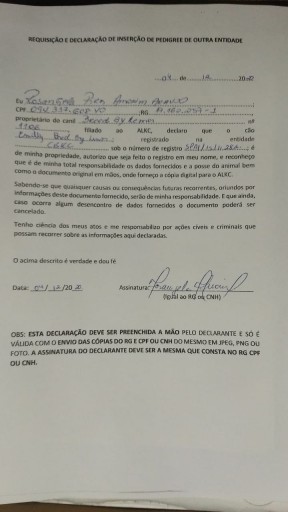 REQUISIÇÃO E DECLARAÇÃO DE INSERÇÃO DE PEDIGREE DE OUTRA ENTIDADE
de 20
Eu
CPF RG
proprietário do canil nº
filiado ao ALKC, declaro que o cão
registrado na entidade
sob o número de registro é
de minha propriedade, autorizo que seja feito o registro em meu nome, e reconheço
que é de minha total responsabilidade os dados fornecidos e a posse do animal bem
como o documento original em mãos, onde forneço a cópia digital para o ALKC.
Sabendo-se que quaisquer causas ou consequências futuras recorrentes, oriundos por
informações deste documento fornecido, serão de minha responsabilidade. E que ainda,
caso ocorra algum desencontro de dados fornecidos o documento poderá ser
cancelado.
Tenho ciência dos meus atos e me responsabilizo por ações cíveis e criminais que
possam recorrer as informações aqui declaradas.
O acima descrito é verdade e dou fé
Data: /20 Assinatura:
(Igual ao RG ou CNH)
OBS: ESTA DECLARAÇÃO DEVE SER PREENCHIDA A MÃO PELO DECLARANTE E SÓ É
VÁLIDA COM O ENVIO DAS CÓPIAS DO RG E CPF OU CNH DO MESMO EM JPEG, PNG OU
FOTO. A ASSINATURA DO DECLARANTE DEVE SER A MESMA QUE CONSTA NO RG CPF
OU CNH.